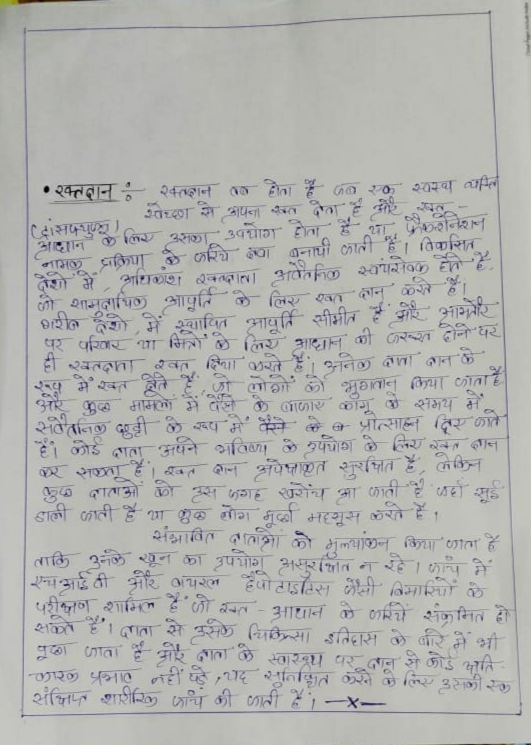 • रक्तदान :- रक्तदान तब होता है जब एक स्वस्थ व्यक्ति
स्वेच्छा से अपना रक्त देता है और रक्त-
आधान (ट्रांसफ्यूजन) के लिए उसका उपयोग होता है या फ्रैकशेनेशन
नामक प्रक्रिया के जरिये दवा बनायी जाती है। विकसित
देशों में, अधिकांश रक्तदाता अवैतनिक स्वयंसेवक होते हैं,
जो सामुदायिक आपूर्ति के लिए रक्त दान करते हैं।
गरीब देशों, में स्थापित आपूर्ति सीमित हैं और आमतौर
पर परिवार या मित्रों के लिए आधान की जरूरत होने पर
ही रक्तदाता रक्त दिया करते हैं। अनेक दाता दान के
रूप में रक्त देते हैं, जो लोगों को भुगतान किया जाता है
और कुछ मामलों में पैसे के बजाए काम के समय में
सवैतनिक छुट्टी के रूप में प्रोत्साहन दिए जाते
हैं। कोई दाता अपने भविष्य के उपयोग के लिए रक्त दान
कर सकता है। रक्त दान अपेक्षाकृत सुरक्षित है, लेकिन
कुछ दाताओं को उस जगह खरोंच आ जाती है जहाँ सूई
डाली जाती है या कुछ लोग मूर्छा महसूस करते है।
संभावित दाताओं का मुल्यांकन किया जाता है
ताकि उनके खून का उपयोग असुरक्षित न रहे। जांच में
एचआईवी और वायरल हैपीटाइटिस जैसी बिमारियों के
परीक्षण शामिल हैं जो रक्त-आधान के जरिये संक्रमित हो
सकते हैं। दाता से उसके चिकित्सा इतिहास के बारे में भी
पूछा जाता है और दाता के स्वास्थ्य पर दान से कोई क्षति-
कारक प्रभाव नहीं पड़े, यह सुनिश्चित करने के लिए उसकी एक
संक्षिप्त शारीरिक जांच की जाती है। —x—